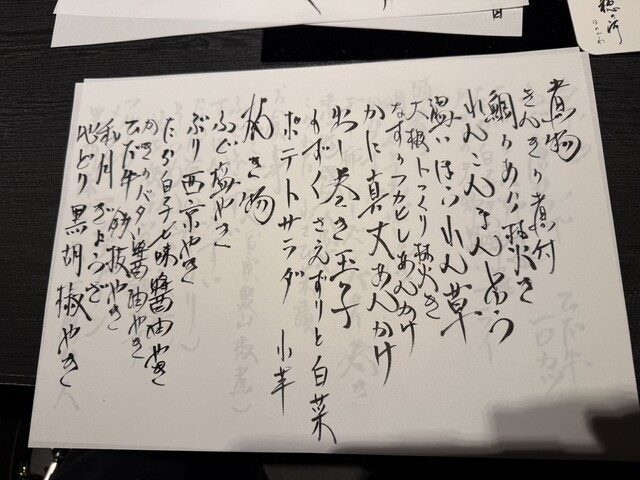 煮物
きんきの煮付
鯛のあら焚き
れんこんまんじゅう
温いほうれん草
大根とつくり焚き
なすのフカヒレあんかけ
かに真丈あんかけ
出し巻き玉子
もずく さえずりと白菜
ポテトサラダ 小芋
焼き物
ふぐ塩やき
ぶり西京やき
たら白子七味醤油やき
かきのバター醤油やき
ひだ牛 鉄板やき
私月 ぎょうざ
地どり黒胡椒やき